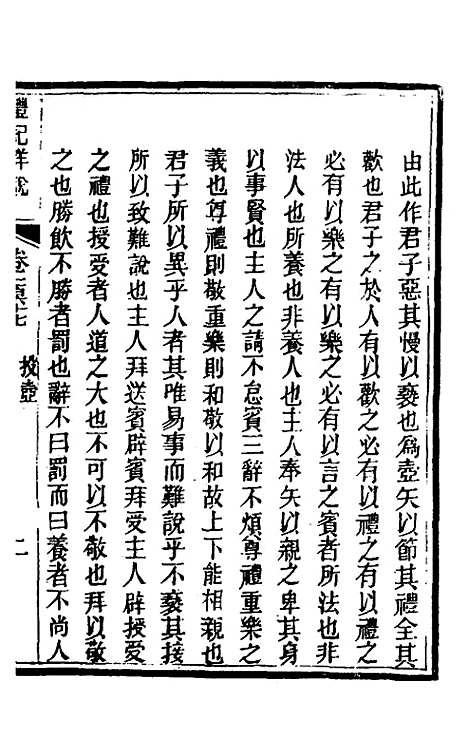 由此作君子惡其慢以褻也爲壺矢以節其禮全其
歡也君子之於人有以歡之必有以禮之有以禮之
必有以樂之有以樂之必有以言之賓者所法也非
法人也所養也非養人也主人奉矢以親之卑其身
以事賢也主人之請不怠賓三辭不煩尊禮重樂之
義也尊禮則敬重樂則和敬以和故上下能相親也
君子所以異乎人者其唯易事而難說乎不褻其接
所以致難說也主人拜送賓辟賓拜受主人辟授受
之禮也授受者人道之大也不可以不敬也拜以敬
之也勝飲不勝者罰也辭不曰罰而曰養者不尚人
禮記詳說
投壺
二